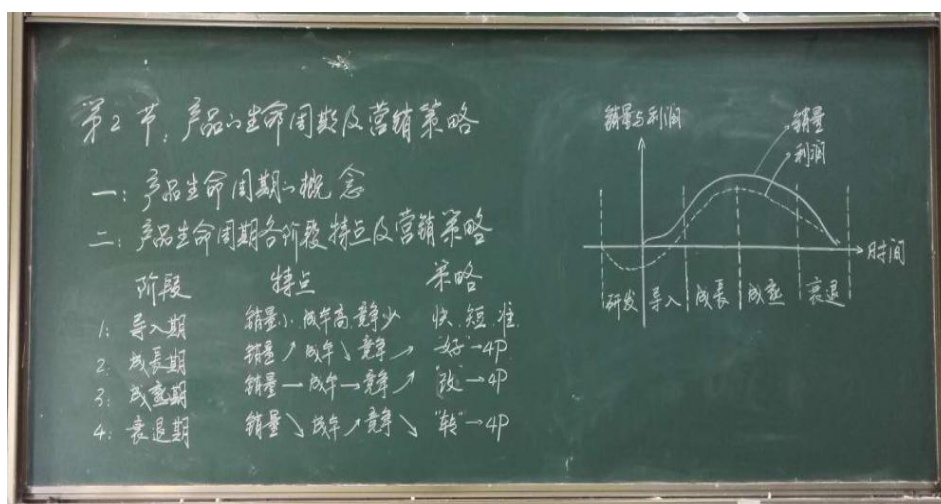 第2节：产品的生命周期及营销策略
一：产品生命周期的概念
二：产品生命周期各阶段特点及营销策略
阶段 特点 策略
1：导入期 销量小、成本高、竞争少 快、短、准
2：成长期 销量↗成本↘竞争↗ "好"→4P
3：成熟期 销量→成本→竞争↗ "改"→4P
4：衰退期 销量↘成本↗竞争↘ "转"→4P
销量与利润
销量
利润
时间
研发 导入 成长 成熟 衰退